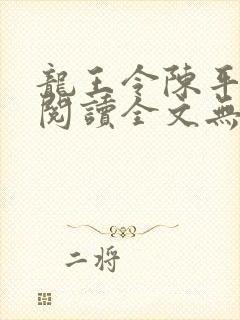 龍王令陳平
閱讀全文無
二將